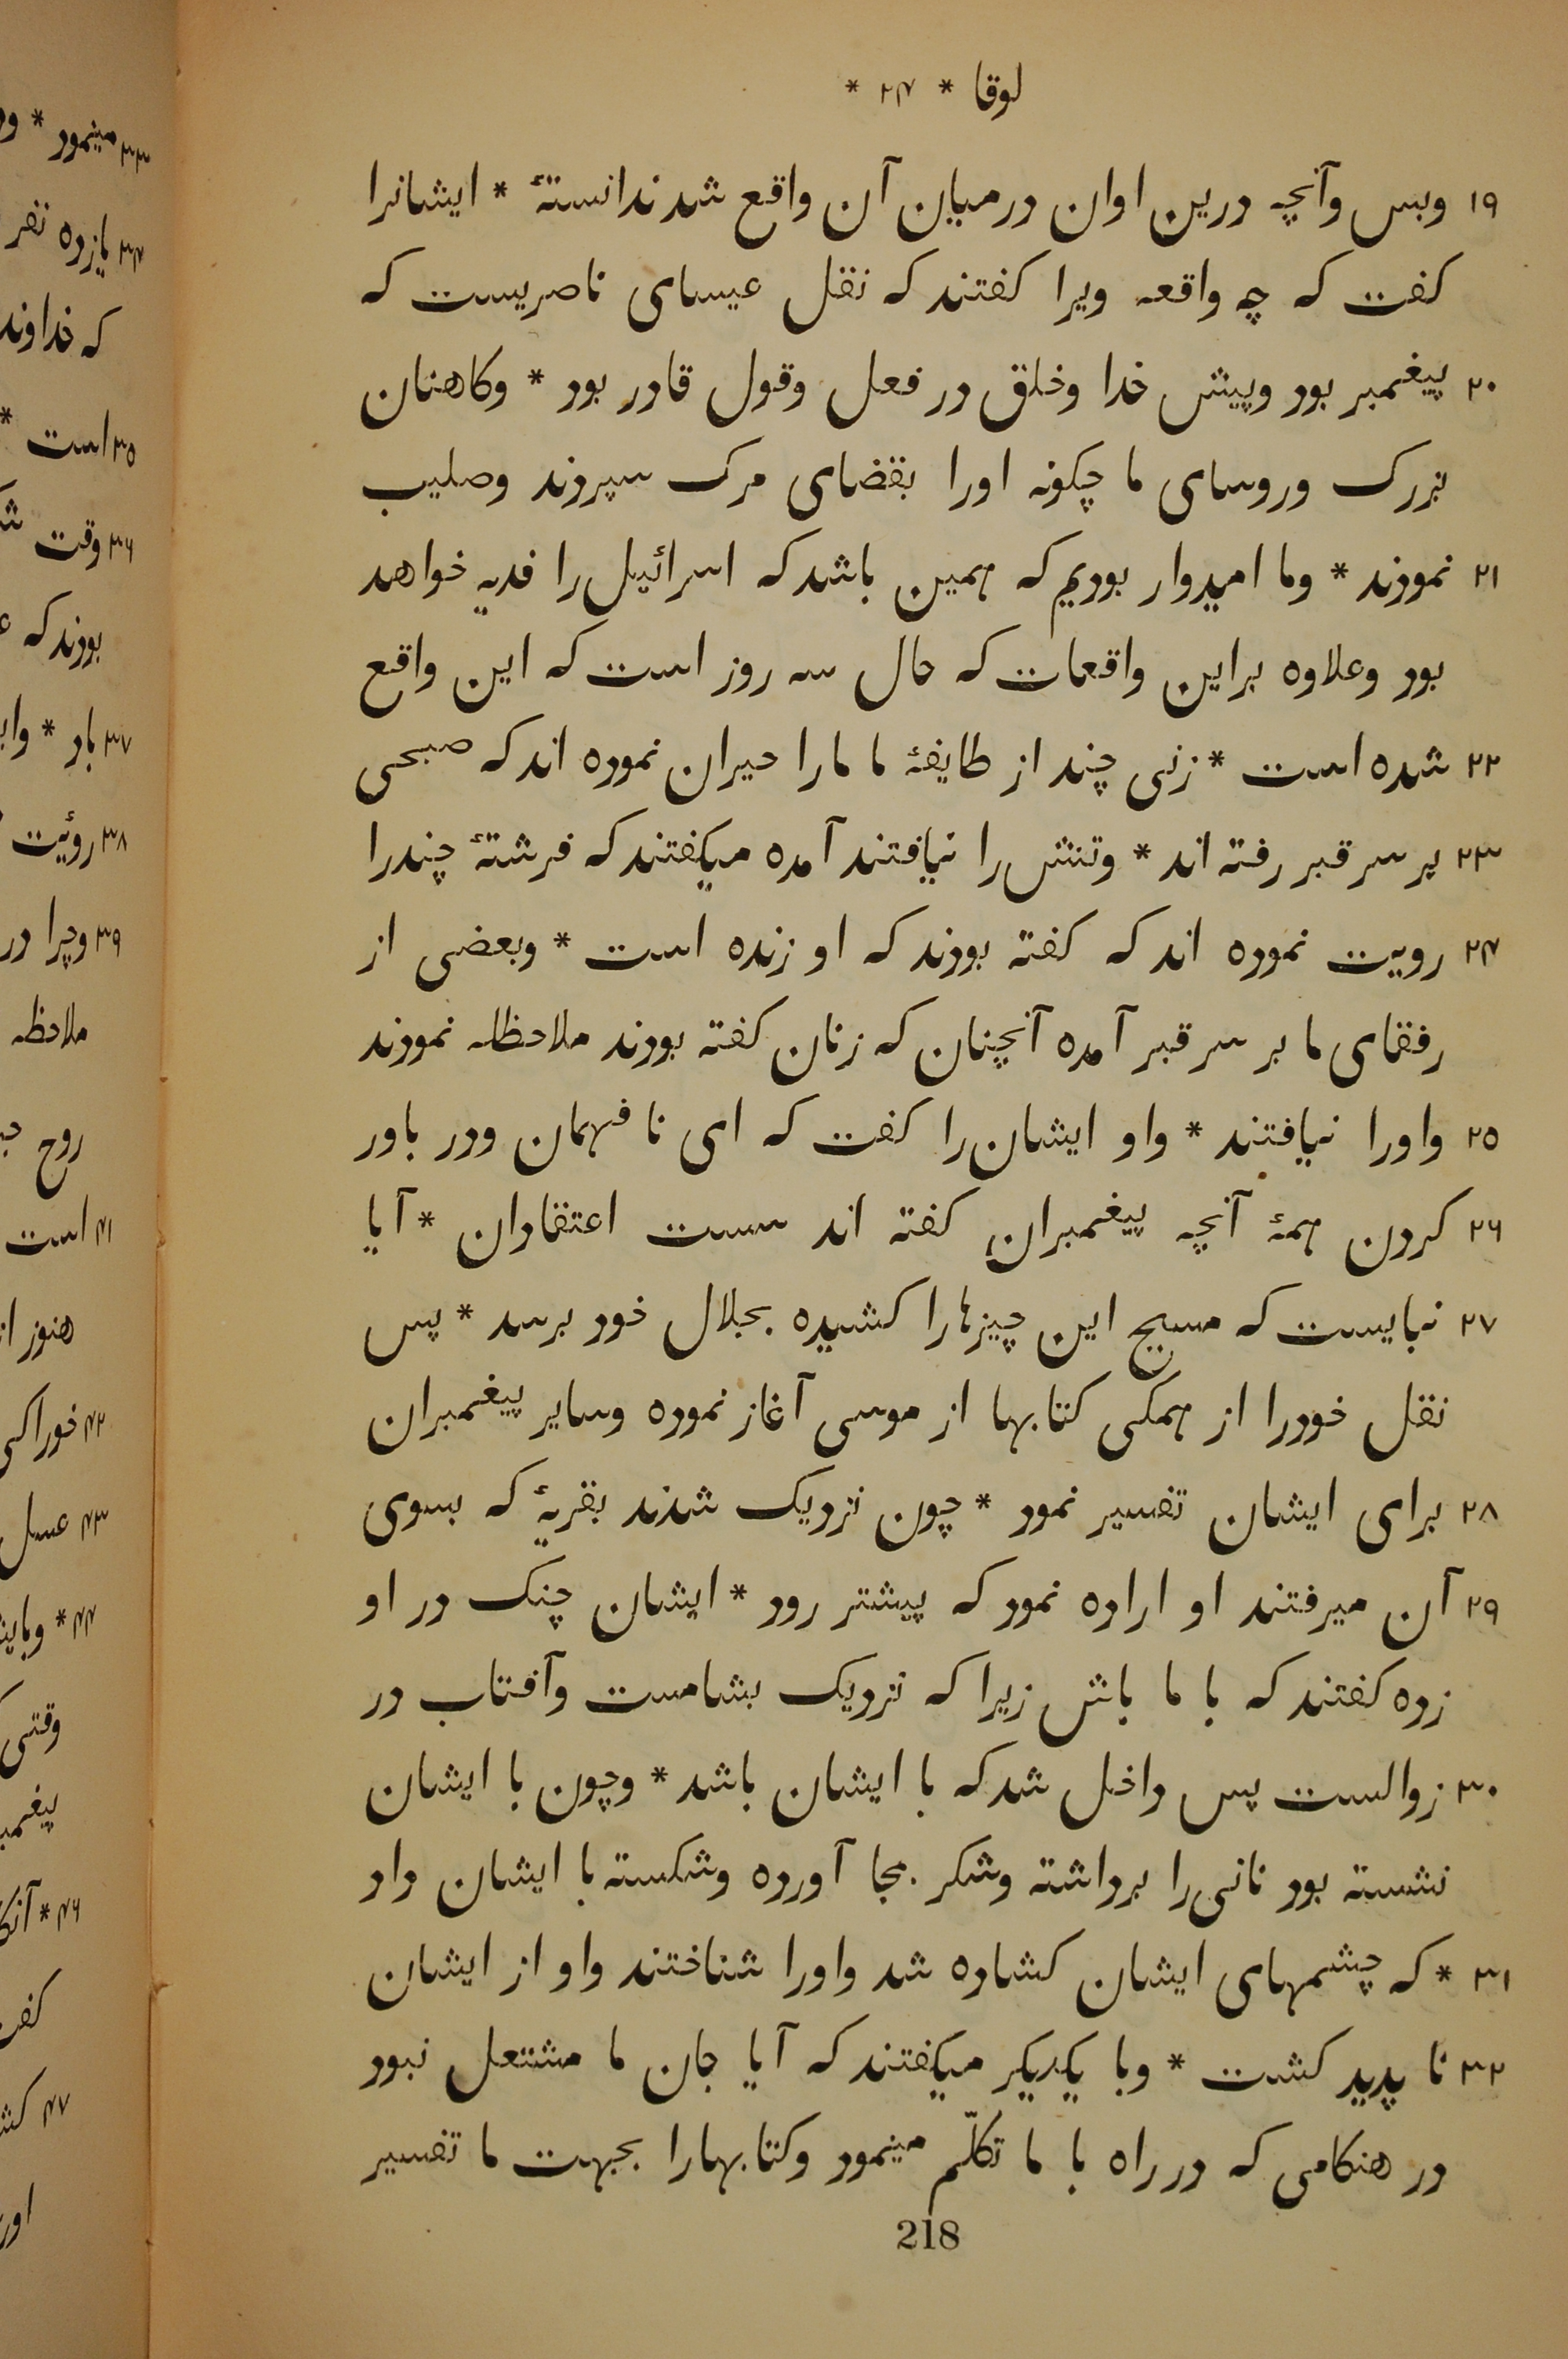 لوقا * ۲۴ *
۱۹ وبس وآنچه درین اوان درمیان آن واقع شد ندانستهٔ * ایشانرا
کفت که چه واقعه ویرا کفتند که نقل عیسای ناصریست که
۲۰ پیغمبر بود وپیش خدا وخلق در فعل وقول قادر بود * وکاهنان
بزرک وروسای ما چکونه اورا بقضای مرک سپردند وصلیب
۲۱ نمودند * وما امیدوار بودیم که همین باشد که اسرائیل را فدیه خواهد
بود وعلاوه براین واقعات که حال سه روز است که این واقع
۲۲ شده است * زنی چند از طایفهٔ ما مارا حیران نموده اند که صبحی
۲۳ بر سر قبر رفته اند * وتنش را نیافتند آمده میکفتند که فرشتهٔ چندرا
۲۴ رویت نموده اند که کفته بودند که او زنده است * وبعضی از
رفقای ما بر سر قبر آمده آنچنان که زنان کفته بودند ملاحظه نمودند
۲۵ واورا نیافتند * واو ایشان را کفت که ای نا فهمان ودر باور
۲۶ کردن همهٔ آنچه پیغمبران کفته اند سست اعتقادان * آیا
۲۷ نبایست که مسیح این چیزها را کشیده بجلال خود برسد * پس
نقل خودرا از همکی کتابها از موسی آغاز نموده وسایر پیغمبران
۲۸ برای ایشان تفسیر نمود * چون نزدیک شدند بقریهٔ که بسوی
۲۹ آن میرفتند او اراده نمود که پیشتر رود * ایشان چنک در او
زده کفتند که با ما باش زیرا که نزدیک بشامست وآفتاب در
۳۰ زوالست پس داخل شد که با ایشان باشد * وچون با ایشان
نشسته بود نانی را برداشته وشکر بجا آورده وشکسته با ایشان داد
۳۱ * که چشمهای ایشان کشاده شد واورا شناختند واو از ایشان
۳۲ نا پدید کشت * وبا یکدیکر میکفتند که آیا جان ما مشتعل نبود
در هنکامی که در راه با ما تکلّم مینمود وکتابهارا بجهت ما تفسیر
218
۳۳ مینمود *
۳۴ یازده نفر
که خداوند
۳۵ است *
۳۶ وقت
بودند که
۳۷ باد *
۳۸ روئیت
۳۹ وچرا در
ملاحظه
روح
۴۱ است
هنوز
۴۲ خوراکی
۴۳ عسل
۴۴ *
وقتی
۴۶ *
۴۷